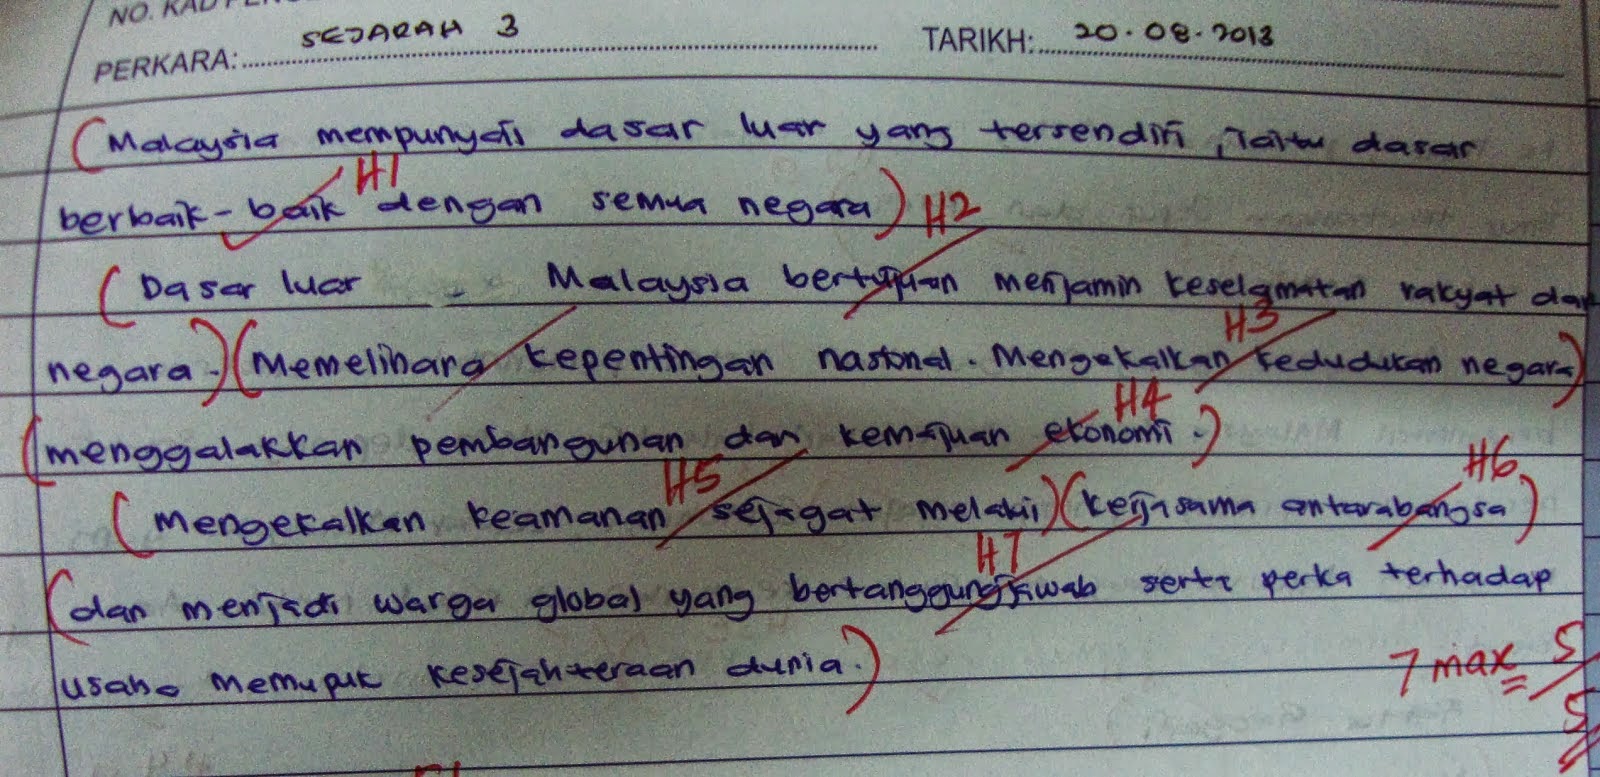 NO. KAD PENG
PERKARA: SEJARAH 3 TARIKH: 20.08.2013
(Malaysia mempunyai dasar luar yang tersendiri, Iaitu dasar
H1
berbaik-baik dengan semua negara) H2
(Dasar luar - Malaysia bertujuan menjamin keselamatan rakyat dan
H3
negara.) (Memelihara kepentingan nasional. Mengekalkan kedudukan negara)
H4
(menggalakkan pembangunan dan kemajuan ekonomi.)
H5 H6
(Mengekalkan keamanan sejagat melalui) (kerjasama antarabangsa)
H7
(dan menjadi warga global yang bertanggungjawab serta perka terhadap
usaha memupuk kesejahteraan dunia.)
7 max 5/5